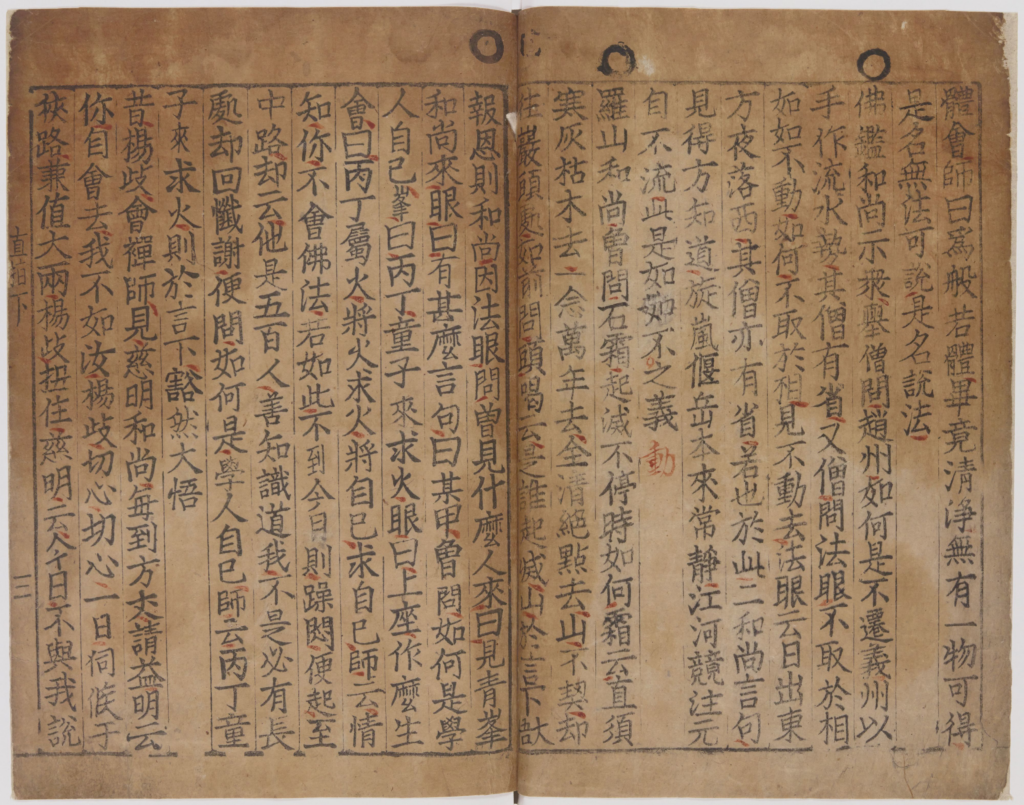 體會師曰爲般若體畢竟清淨無有一物可得
是名無法可說是名說法
佛鑑和尚示衆擧僧問趙州如何是不遷義州以
手作流水勢其僧有省又僧問法眼不取於相
如如不動如何不取於相見不動去法眼云日出東
方夜落西其僧亦有省若也於此二和尚言句
見得方知道旋嵐偃岳本來常靜江河競注元
自不流此是如如不之義 動
羅山和尚曾問石霜起滅不停時如何霜云直須
寒灰枯木去一念萬年去全清絶點去山不契却
往巖頭處如前問頭喝云是誰起滅山於言下猷
報恩則和尚因法眼問曾見什麽人來曰見青峯
和尚來眼曰有甚麽言句曰某甲曾問如何是學
人自己峯曰丙丁童子來求火眼曰上座作麽生
會曰丙丁屬火將火求火將自己求自己師云情
知你不會佛法若如此不到今日則躁悶便起至
中路却云他是五百人善知識道我不是必有長
處却回懺謝便問如何是學人自己師云丙丁童
子來求火則於言下豁然大悟
昔楊歧會禪師見慈明和尚每到方丈請益明云
你自會去我不如汝楊歧切心切心一日伺候于
挾路兼值大雨楊歧扭住慈明云今日不與我說
直指下
三